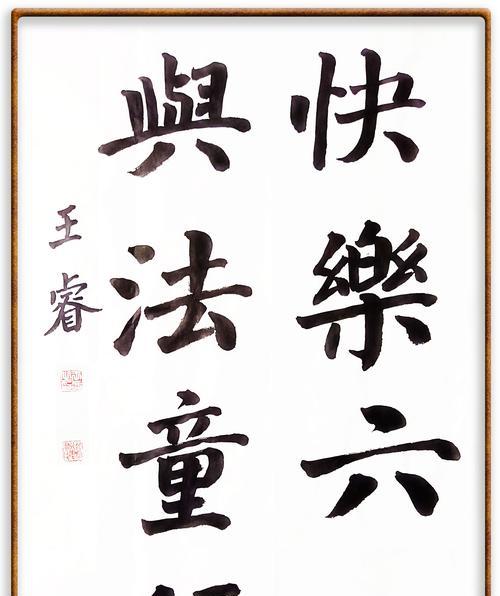 快樂六
與法童
王睿